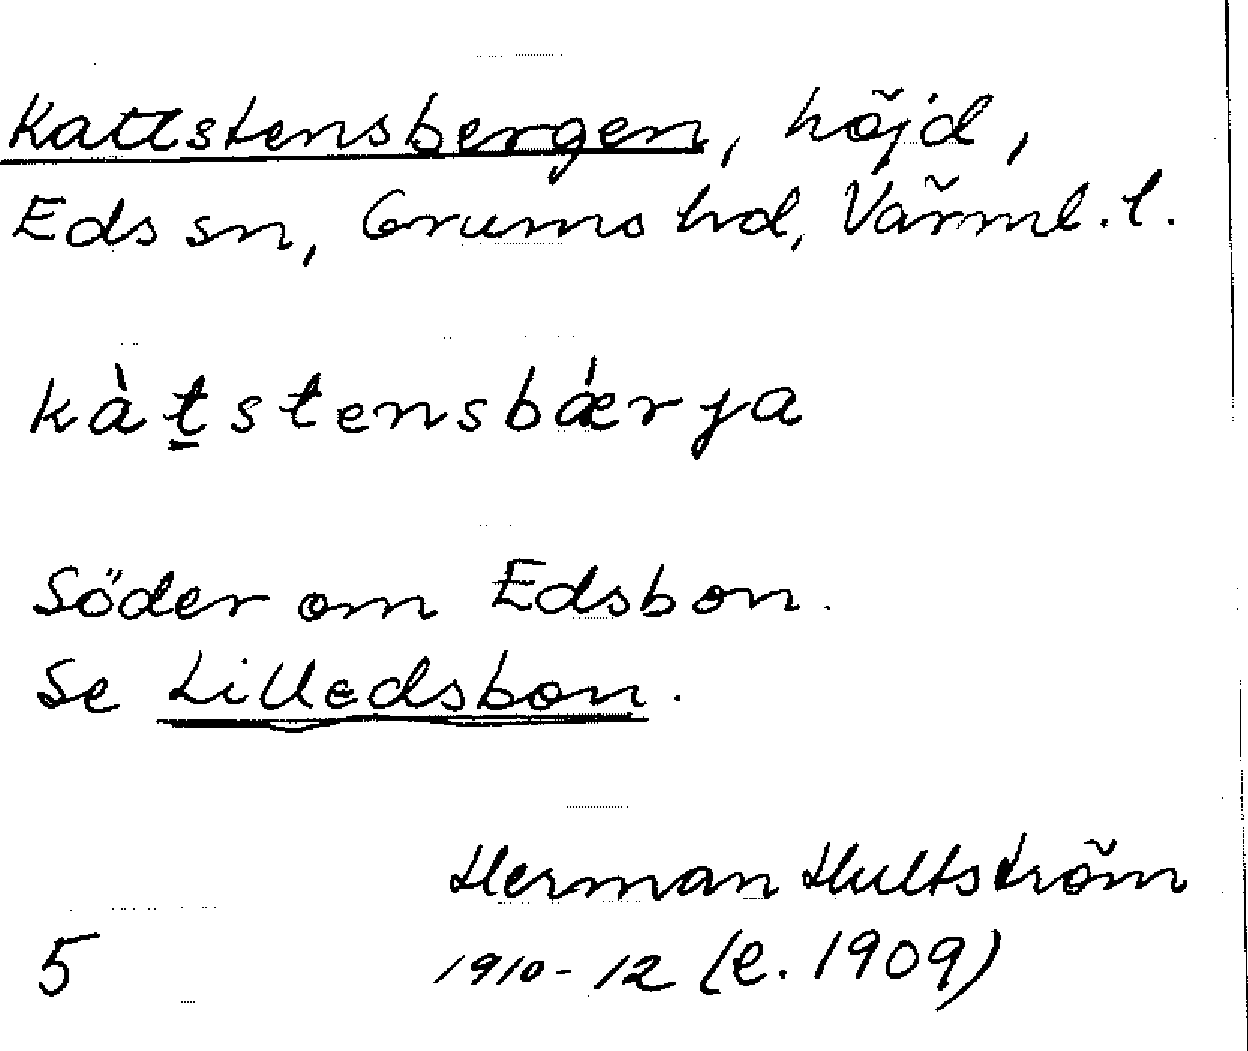 Kattstensbergen, höjd,
Eds sn, Grums hd, Värml. l.
kàt̲stensbǽrja
Söder om Edsbon.
Se Lilledsbon.
Herman Hultström
5 1910-12 (e. 1909)